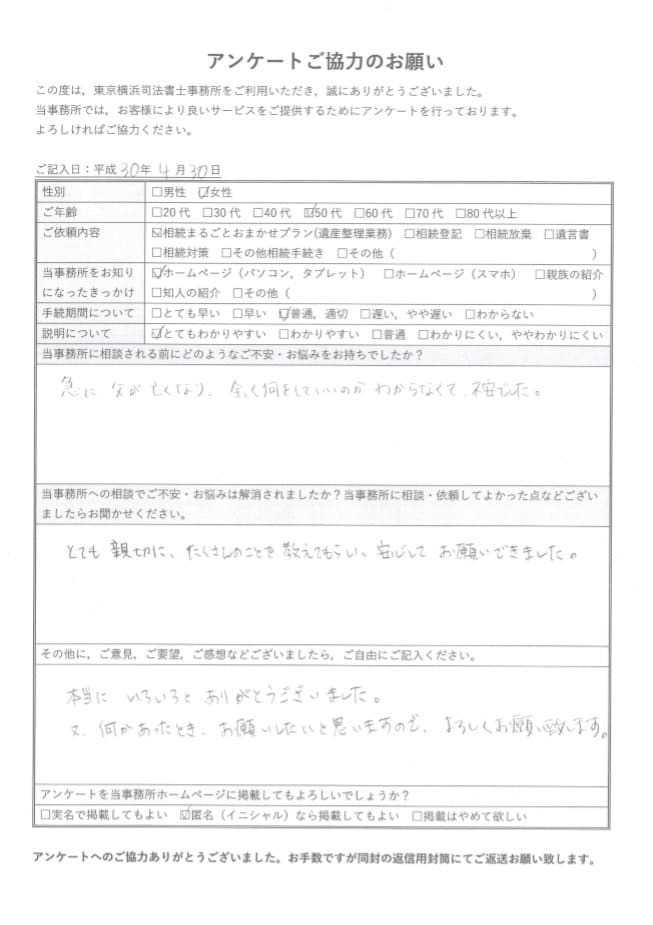 アンケートご協力のお願い
この度は，東京横浜司法書士事務所をご利用いただき，誠にありがとうございました。
当事務所では，お客様により良いサービスをご提供するためにアンケートを行っております。
よろしければご協力ください。
ご記入日：平成 30年 4月 30日
性別 □男性 ☑女性
ご年齢 □20代 □30代 □40代 ☑50代 □60代 □70代 □80代以上
ご依頼内容 ☑相続まるごとおまかせプラン(遺産整理業務) □相続登記 □相続放棄 □遺言書
□相続対策 □その他相続手続き □その他（ ）
当事務所をお知り ☑ホームページ（パソコン，タブレット） □ホームページ（スマホ） □親族の紹介
になったきっかけ □知人の紹介 □その他（ ）
手続期間について □とても早い □早い ☑普通，適切 □遅い，やや遅い □わからない
説明について ☑とてもわかりやすい □わかりやすい □普通 □わかりにくい，ややわかりにくい
当事務所に相談される前にどのようなご不安・お悩みをお持ちでしたか？
急に 父が亡くなり、全く何をしていいのか わからなくて、不安でした。
当事務所への相談でご不安・お悩みは解消されましたか？当事務所に相談・依頼してよかった点などござい
ましたらお聞かせください。
とても 親切に、たくさんのことを 教えてもらい、安心して お願いできました。
その他に，ご意見，ご要望，ご感想などございましたら，ご自由にご記入ください。
本当に いろいろと ありがとうございました。
又、何かあったとき、お願いしたいと思いますので、よろしくお願い致します。
アンケートを当事務所ホームページに掲載してもよろしいでしょうか？
□実名で掲載してもよい ☑匿名（イニシャル）なら掲載してもよい □掲載はやめて欲しい
アンケートへのご協力ありがとうございました。お手数ですが同封の返信用封筒にてご返送お願い致します。